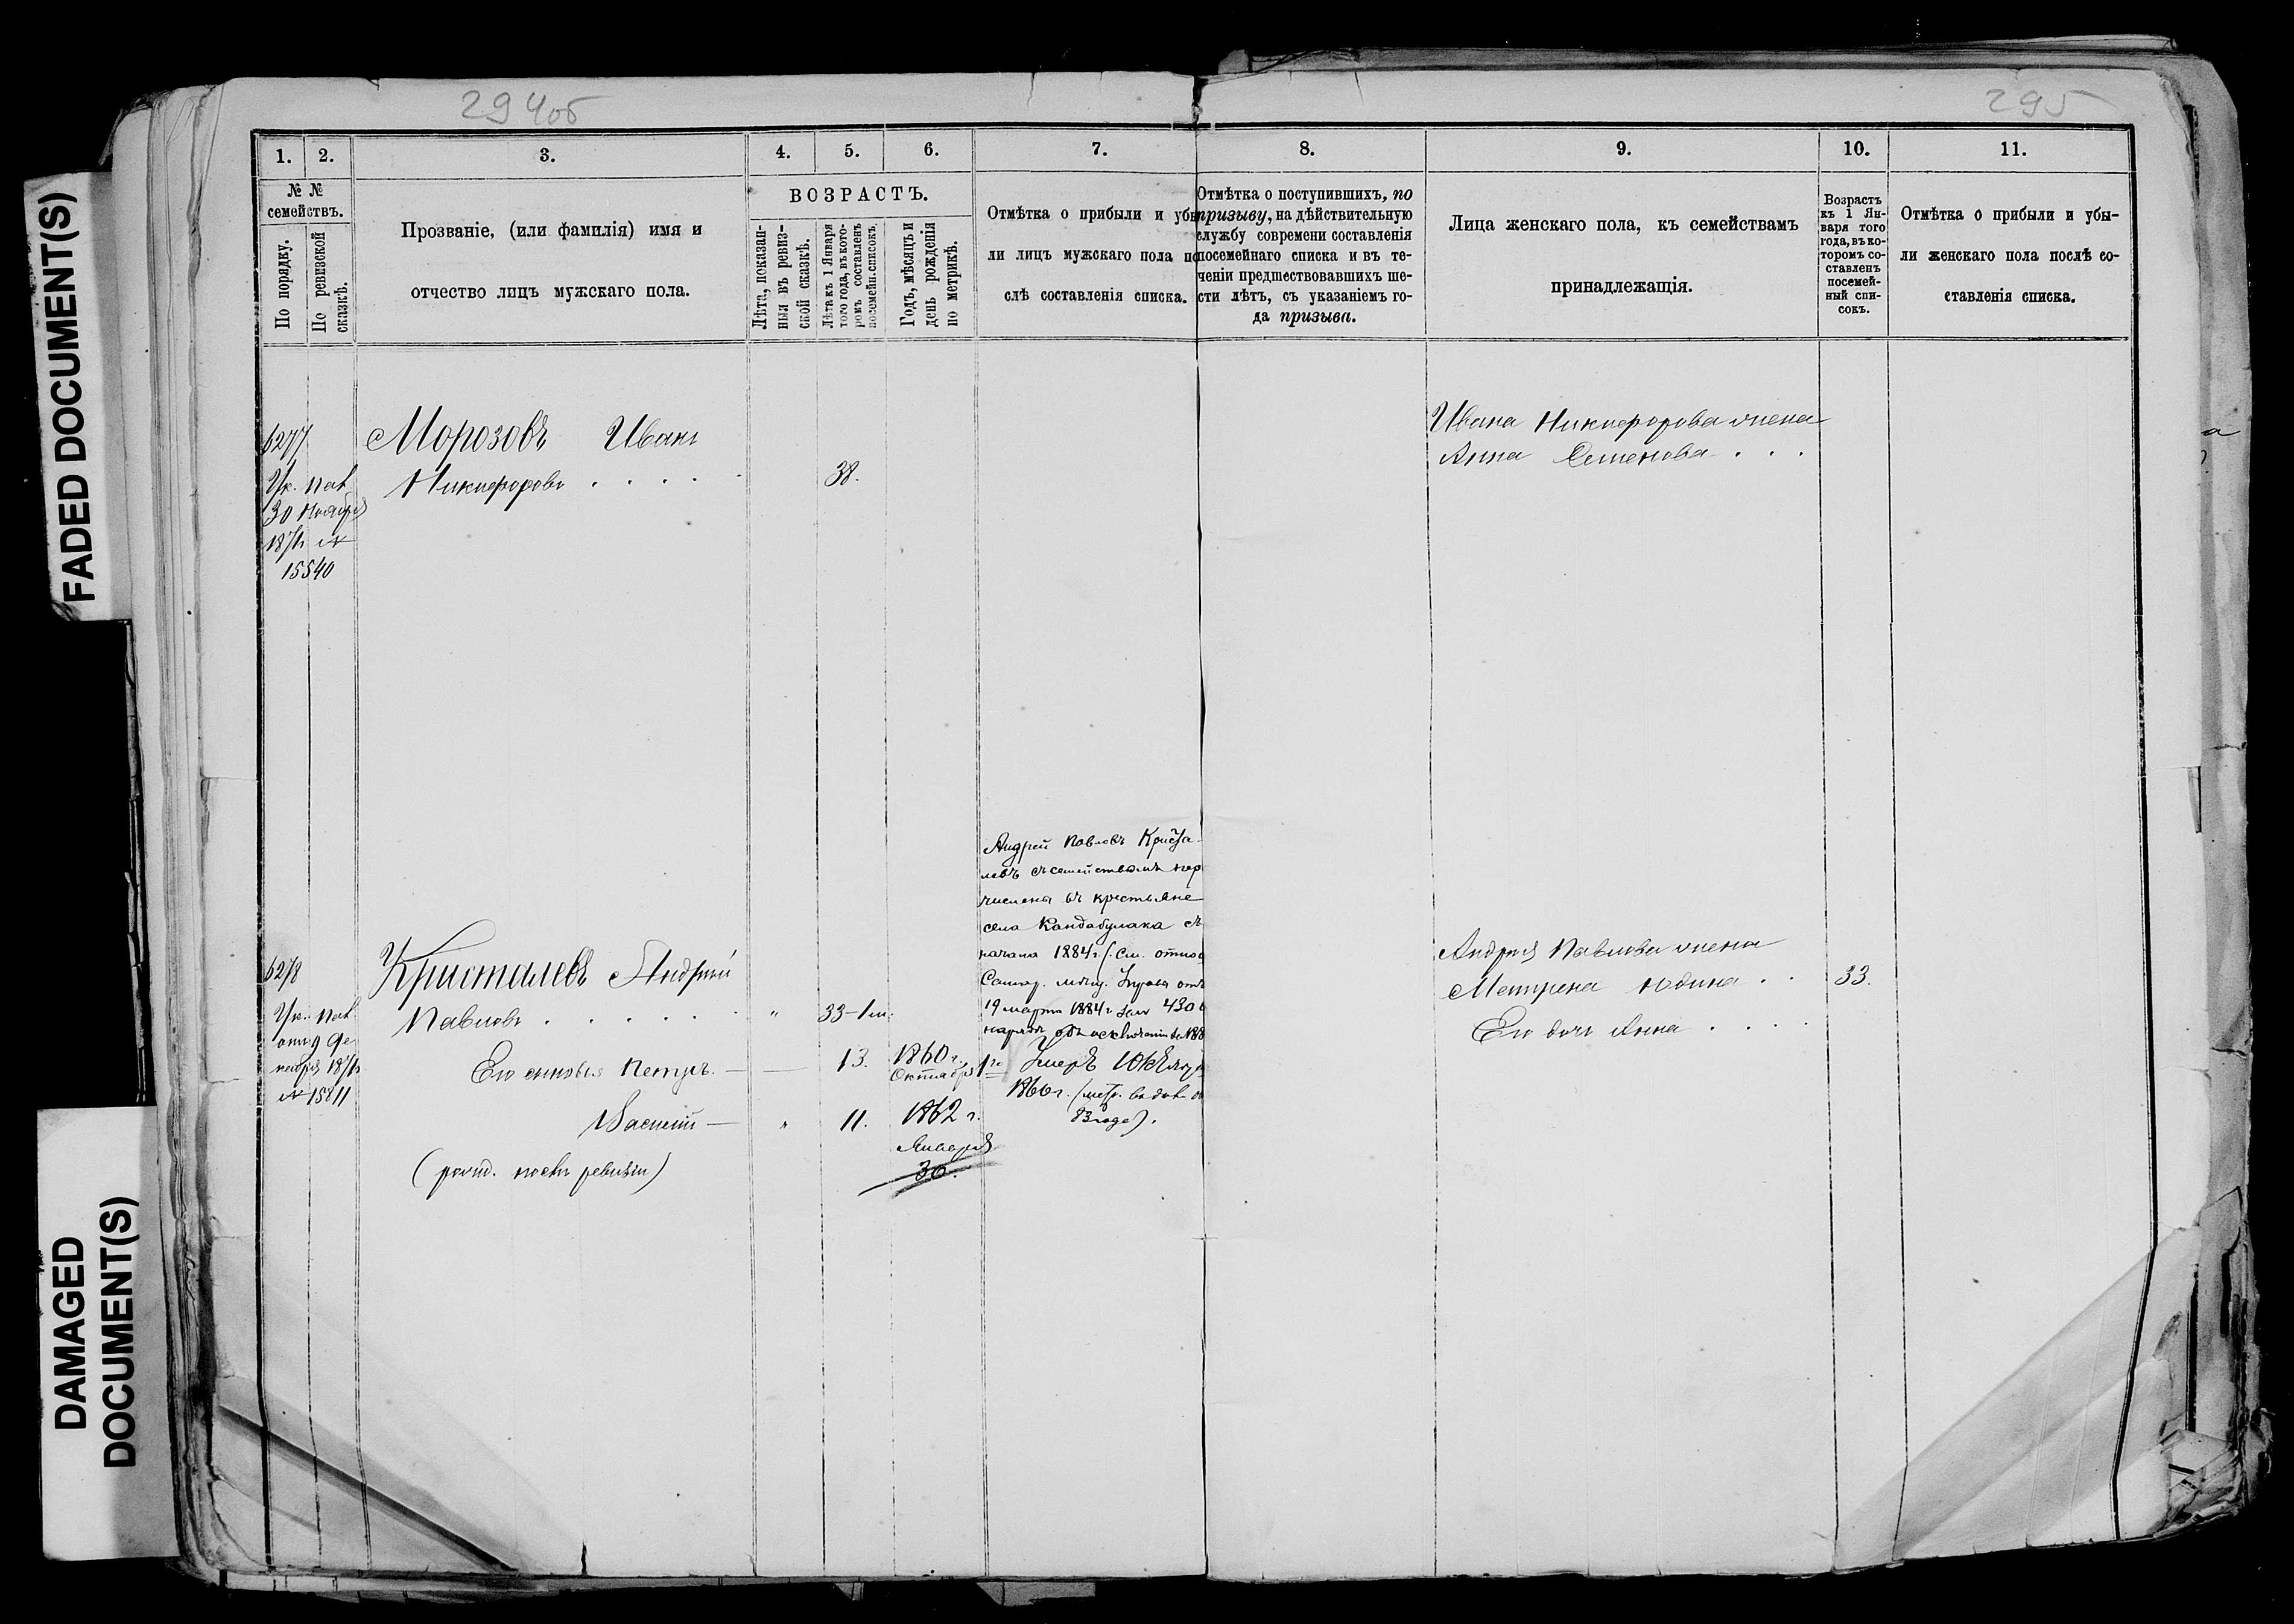 FADED DOCUMENT(S)
DAMAGED
DOCUMENT(S)
294об
295
1.
2.
3.
4.
5.
6.
7.
8.
9.
10.
11.
№ №
семействъ.
По порядку.
По ревизской
сказкѣ.
Прозваніе, (или фамилія) имя и
отчество лицъ мужскаго пола.
ВОЗРАСТЪ.
Лѣта, показан-
ныя въ ревиз-
ской сказкѣ.
Лѣта къ 1 Января
того года, въ кото-
ромъ составленъ
посемейн. списокъ.
Годъ, мѣсяцъ и
день рожденія
по метрикѣ.
Отмѣтка о прибыли и убы
ли лицъ мужскаго пола по
слѣ составленія списка.
Отмѣтка о поступившихъ, по
призыву, на дѣйствительную
службу современи составленія
посемейнаго списка и въ те-
ченіи предшествовавшихъ ше-
сти лѣтъ, съ указаніемъ го-
да призыва.
Лица женскаго пола, къ семействамъ
принадлежащія.
Возрастъ
къ 1 Ян-
варя того
года, въ ко-
торомъ со-
ставленъ
посемей-
ный спи-
сокъ.
Отмѣтка о прибыли и убы-
ли женскаго пола послѣ со-
ставленія списка.
6277
Ук. Пал.
30 Ноября
187 №
15540
Морозовъ Иванъ
Никифоровъ . . . . .
38.
Ивана Никифорова жена
Анна Семенова . . .
6278
Ук. Пал.
отъ 9 Де
кабря 187
№ 15811
Кристалевъ Андрей
Павловъ . . . . . .
" 33-1 м.
Его сыновья Петръ. —
13.
1860 г.
Октября 1го
Василій —
" 11.
1862 г.
Января
30.
(рожд. послѣ ревизіи)
Андрей Павловъ Криста
левъ съ семействомъ пер
числены въ крестьяне
села Кандабулака съ
начала 1884 г. (См. отнош
Самар. мѣщ. Управы отъ
19 марта 1884 г. за № 430 в
нарядѣ объ исключении 188
Умеръ 10 Февр
1866 г. (метр.
83 года).
Андрея Павлова жена
Матрена Юдина . .
33.
Его дочь Анна . . . .